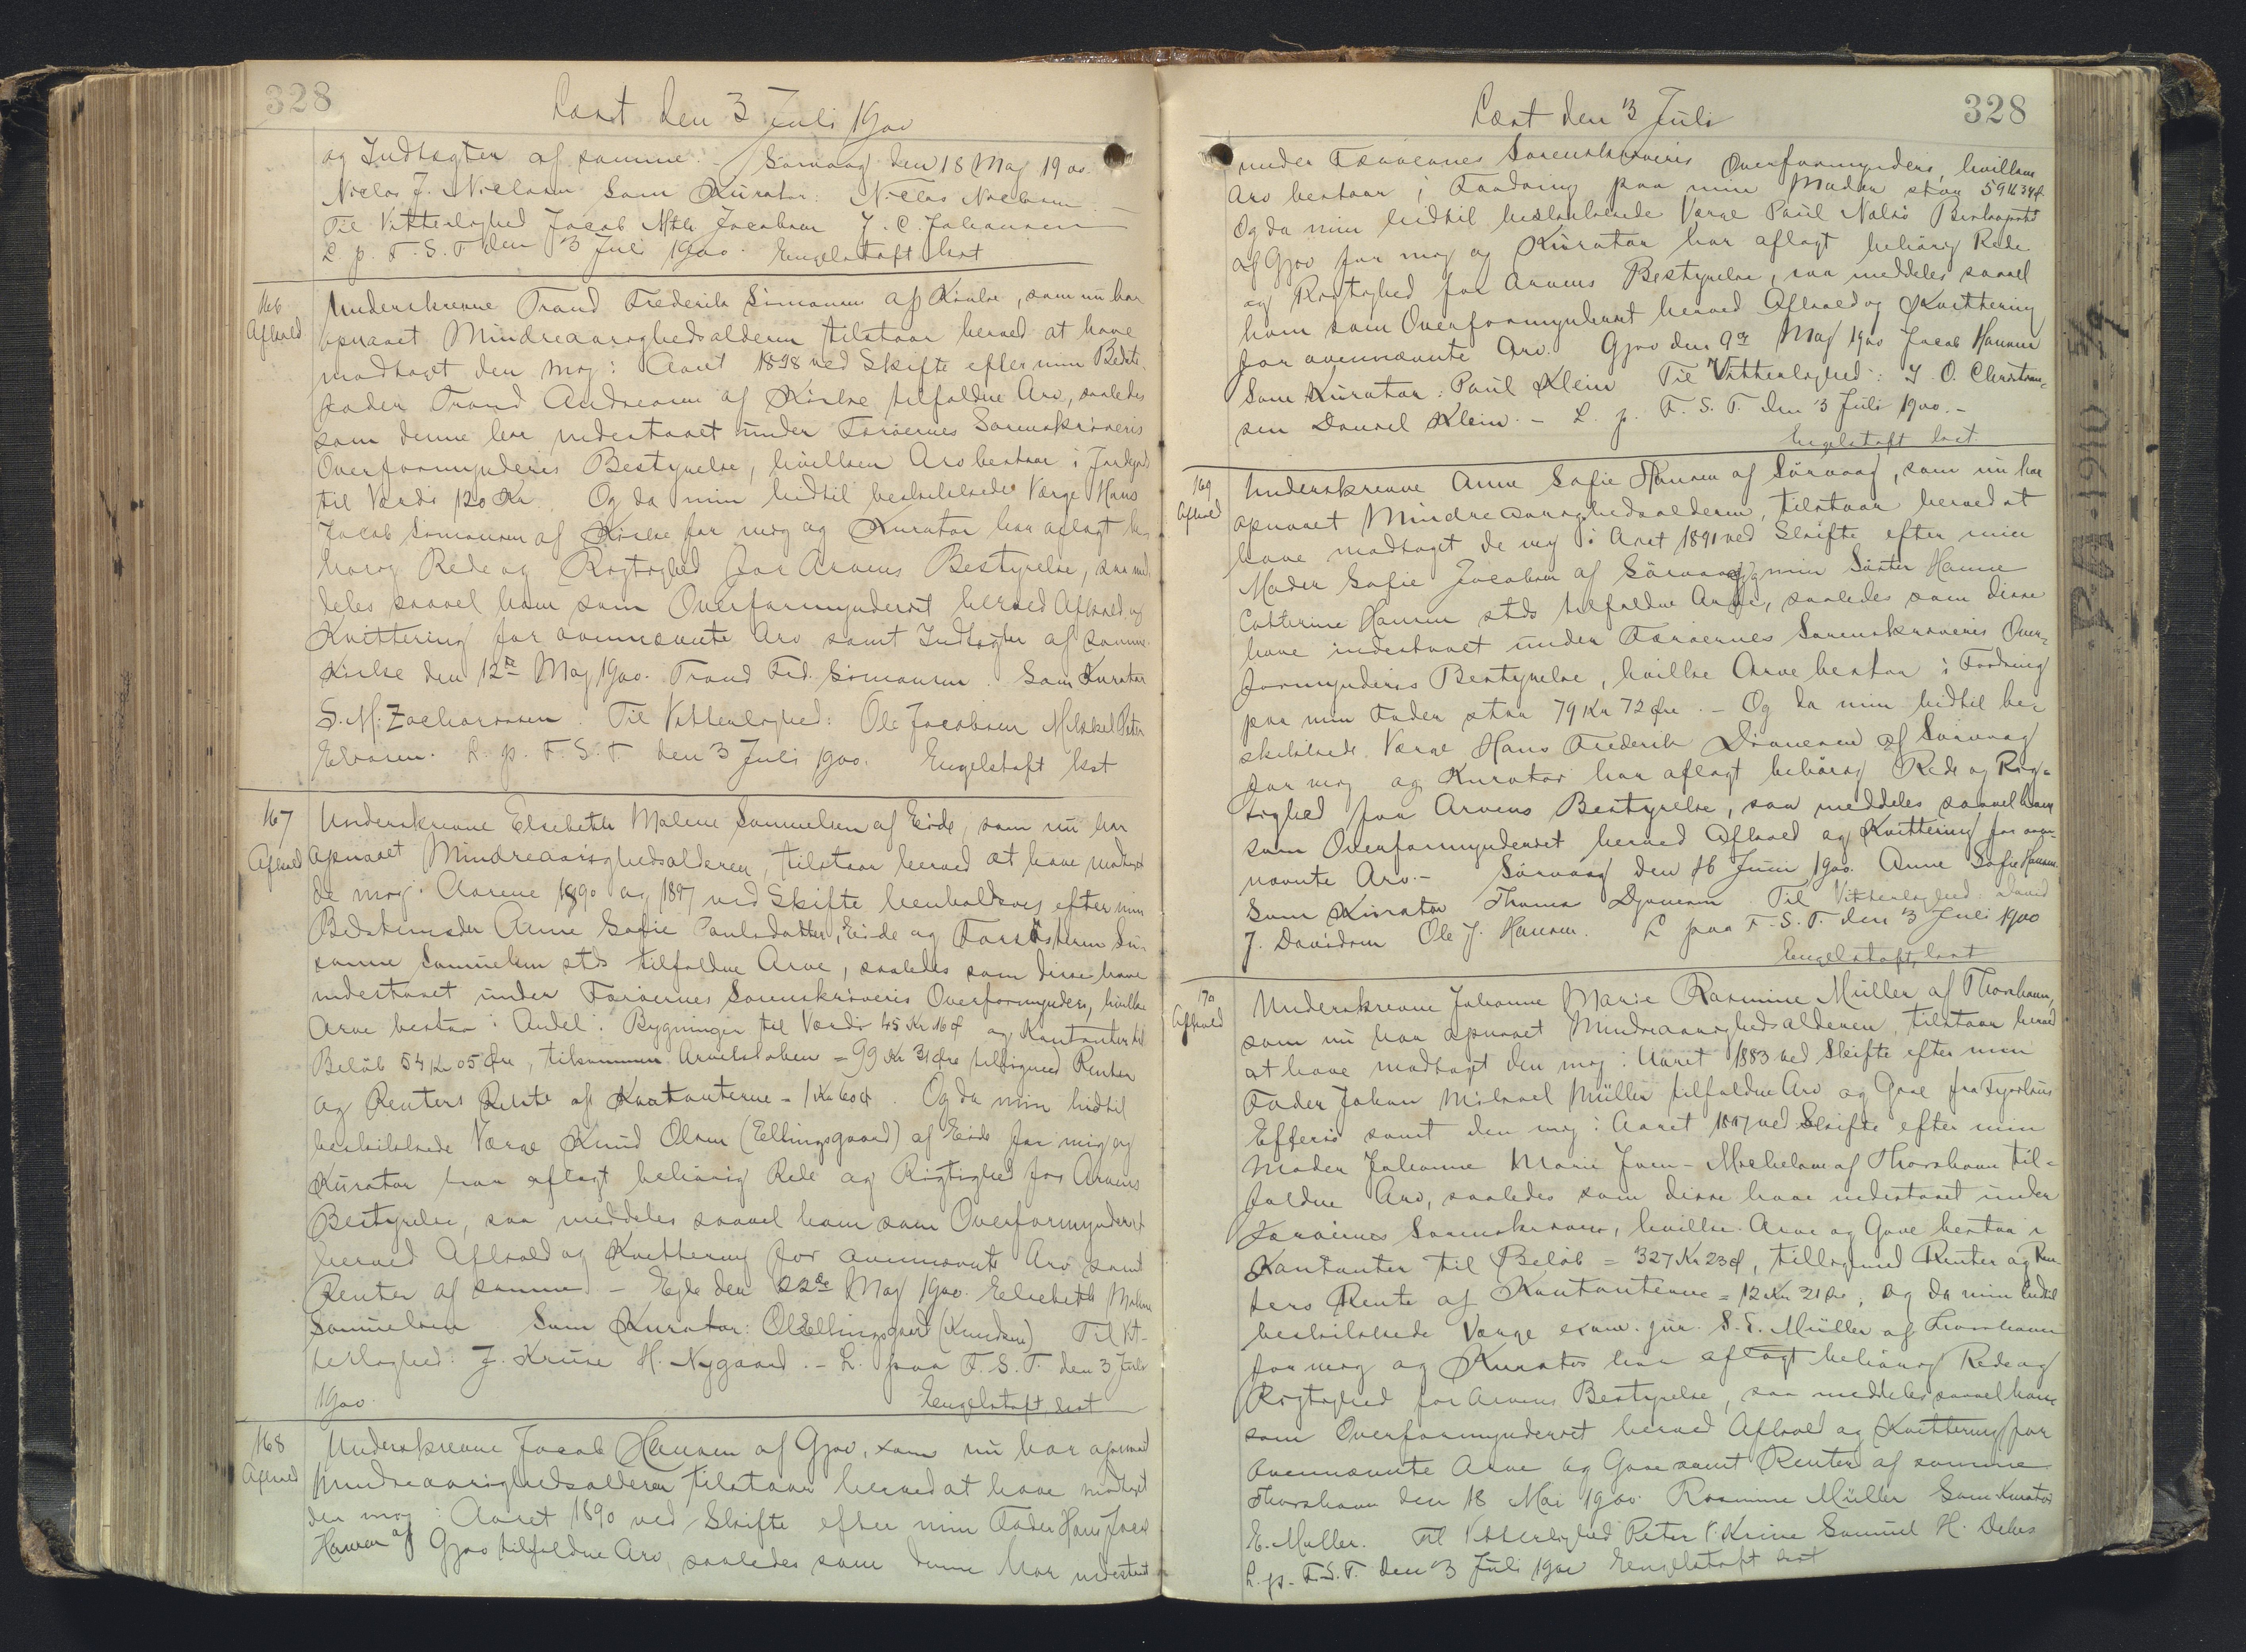 328
Læst den 3 Juli 1900
og Indtægter af samme. - Sörvaag den 18 Maj 1900.
Niclas J. Niclasen Som Kurator: Niclas Niclasen
Til Vitterlighed Jacob Mth. Jacobsen J. C. Johansen
L. p. F. S. T. den 3 Juli 1900. Engelstoft kst
166
Afkald
Underskrevne Trond Frederik Simonsen af Kirke, som nu har
opnaaet Mindreaarighedsalderen tilstaar herved at have
modtaget den mig i Aaret 1898 ved Skifte efter min Bedste-
fader Trond Andreasen af Kirke tilfaldne Arv, saaledes
som denne har indestaaet under Færøernes Sorenskriveris
Overformynderis Bestyrelse, hvilken Arv bestaar i Jordgods
til Værdi 120 Kr. Og da min hidtil beskikkede Værge Hans
Jacob Simonsen af Kirke for mig og Kurator har aflagt be-
hørig Rede og Rigtighed for Arvens Bestyrelse, saa med-
deles saavel ham som Overformynderiet herved Afkald og
Kvittering for ovennævnte Arv samt Indtægter af samme.
Kirke den 12te Maj 1900. Trond Fred. Simonsen. Som Kurator
S. M. Zachariasen. Til Vitterlighed: Ole Jacobsen Mikkel Peter
L. p. F. S. T. den 3 Juli 1900. Engelstoft kst
167
Afkald
Underskrevne Elsebeth Malene Samuelsen af Eide, som nu har
opnaaet Mindreaarighedsalderen, tilstaar herved at have modtaget
de mig i Aarene 1890 og 1897 ved Skifte henholdsvis efter min
Bedstemoder Anne Sofie Poulsdatter, Eide og Farsösteren Su-
sanne Samuelsen stds tilfaldne Arve, saaledes som disse have
indestaaet under Færøernes Sorenskriveris Overformynderi, hvilke
Arve bestaa i Andel i Bygninger til Værdi 45 Kr 16 Ø og Kontanter til
Beløb 54 Kr 05 Øre, tilsammen Arvelodden = 99 Kr 31 Øre tilligemed Renter
og Renters Rente af Kontanterne = 1 Kr 60 Ø. Og da min hidtil
beskikkede Værge Knud Olsen (Ellingsgaard) af Eide for mig og
Kurator har aflagt behörig Rede og Rigtighed for Arvens
Bestyrelse, saa meddeles saavel ham som Overformynderiet
herved Afkald og Kvittering for ovennævnte Arv samt
Renter af samme - Ejde den 22de Maj 1900. Elsebeth Malene
Samuelsen Som Kurator: Ol Ellingsgaard (Knudsen) Til Vit-
terlighed: J. Kruse H. Nygaard. - L. paa F. S. T. den 3 Juli
1900. Engelstoft kst
168
Afkald
Underskrevne Jacob Hansen af Gjov, som nu har opnaaet
Mindreaarighedsalderen tilstaar herved at have modtaget
den mig i Aaret 1890 ved Skifte efter min Fader Hans Jacob
Hansen af Gjov tilfaldne Arv, saaledes som denne har indestaaet
Læst den 3 Juli
328
under Færøernes Sorenskriveris Overformynderi, hvilken
Arv bestaar i Fordring paa min Moder stor 59 Kr 34 Ø.
Og da min hidtil beskikkede Værge Paul Nolsö
af Gjov for mig og Kurator har aflagt behörig Rede
og Rigtighed for Arvens Bestyrelse, saa meddeles saavel
ham som Overformynderiet herved Afkald og Kvittering
for ovennævnte Arv. Gjov den 9de Maj 1900 Jacob Hansen
Som Kurator: Paul Klein Til Vitterlighed: J. O. Christian-
sen Daniel Klein. - L. p. F. S. T. den 3 Juli 1900. -
Engelstoft kst.
169
Afkald
Underskrevne Anne Sofie Hansen af Sörvaag, som nu har
opnaaet Mindreaarighedsalderen, tilstaar herved at
have modtaget de mig i Aaret 1891 ved Skifte efter min
Moder Sofie Jacobsen af Sörvaag og min Söster Hanne
Cathrine Hansen stds tilfaldne Arve, saaledes som disse
have indestaaet under Færøernes Sorenskriveris Over-
formynderis Bestyrelse, hvilke Arve bestaa i Fordring
paa min Fader stor 79 Kr 72 Øre. - Og da min hidtil be-
skikkede Værge Hans Frederik Joensen af Sörvaag
for mig og Kurator har aflagt behörig Rede og Rig-
tighed for Arvens Bestyrelse, saa meddeles saavel ham
som Overformynderiet herved Afkald og Kvittering for oven-
nævnte Arv. - Sörvaag den 16 Juni 1900. Anne Sofie Hansen
Som Kurator Thomas Til Vitterlighed David
J. Davidsen Ole J. Hansen. L paa F. S. T. den 3 Juli 1900
Engelstoft, kst
170
Afkald
Underskrevne Johanne Marie Rasmine Müller af Thorshavn,
som nu har opnaaet Mindreaarighedsalderen, tilstaar herved
at have modtaget den mig i Aaret 1883 ved Skifte efter min
Fader Johan Mikael Müller tilfaldne Arv og Gave fra
samt den mig i Aaret 1897 ved Skifte efter min
Moder Johanne Marie Joen-Michelsen af Thorshavn til-
faldne Arv, saaledes som disse have indestaaet under
Færøernes Sorenskriveri, hvilke Arve og Gave bestaa i
Kontanter til Beløb = 327 Kr 23 Ø, tilligemed Renter og Ren-
ters Rente af Kontanterne = 12 Kr 21 Øre, Og da min hidtil
beskikkede Værge exam. jur. S. E. Müller af Thorshavn
for mig og Kurator har aflagt behörig Rede og
Rigtighed for Arvens Bestyrelse, saa meddeles saavel ham
som Overformynderiet herved Afkald og Kvittering for
ovennævnte Arve og Gave samt Renter af samme
Thorshavn den 18 Mai 1900. Rasmine Müller Som Kurator
E. Müller. Til Vitterlighed Peter Kruse Samuel H. Debes
L. p. F. S. T. den 3 Juli 1900 Engelstoft kst